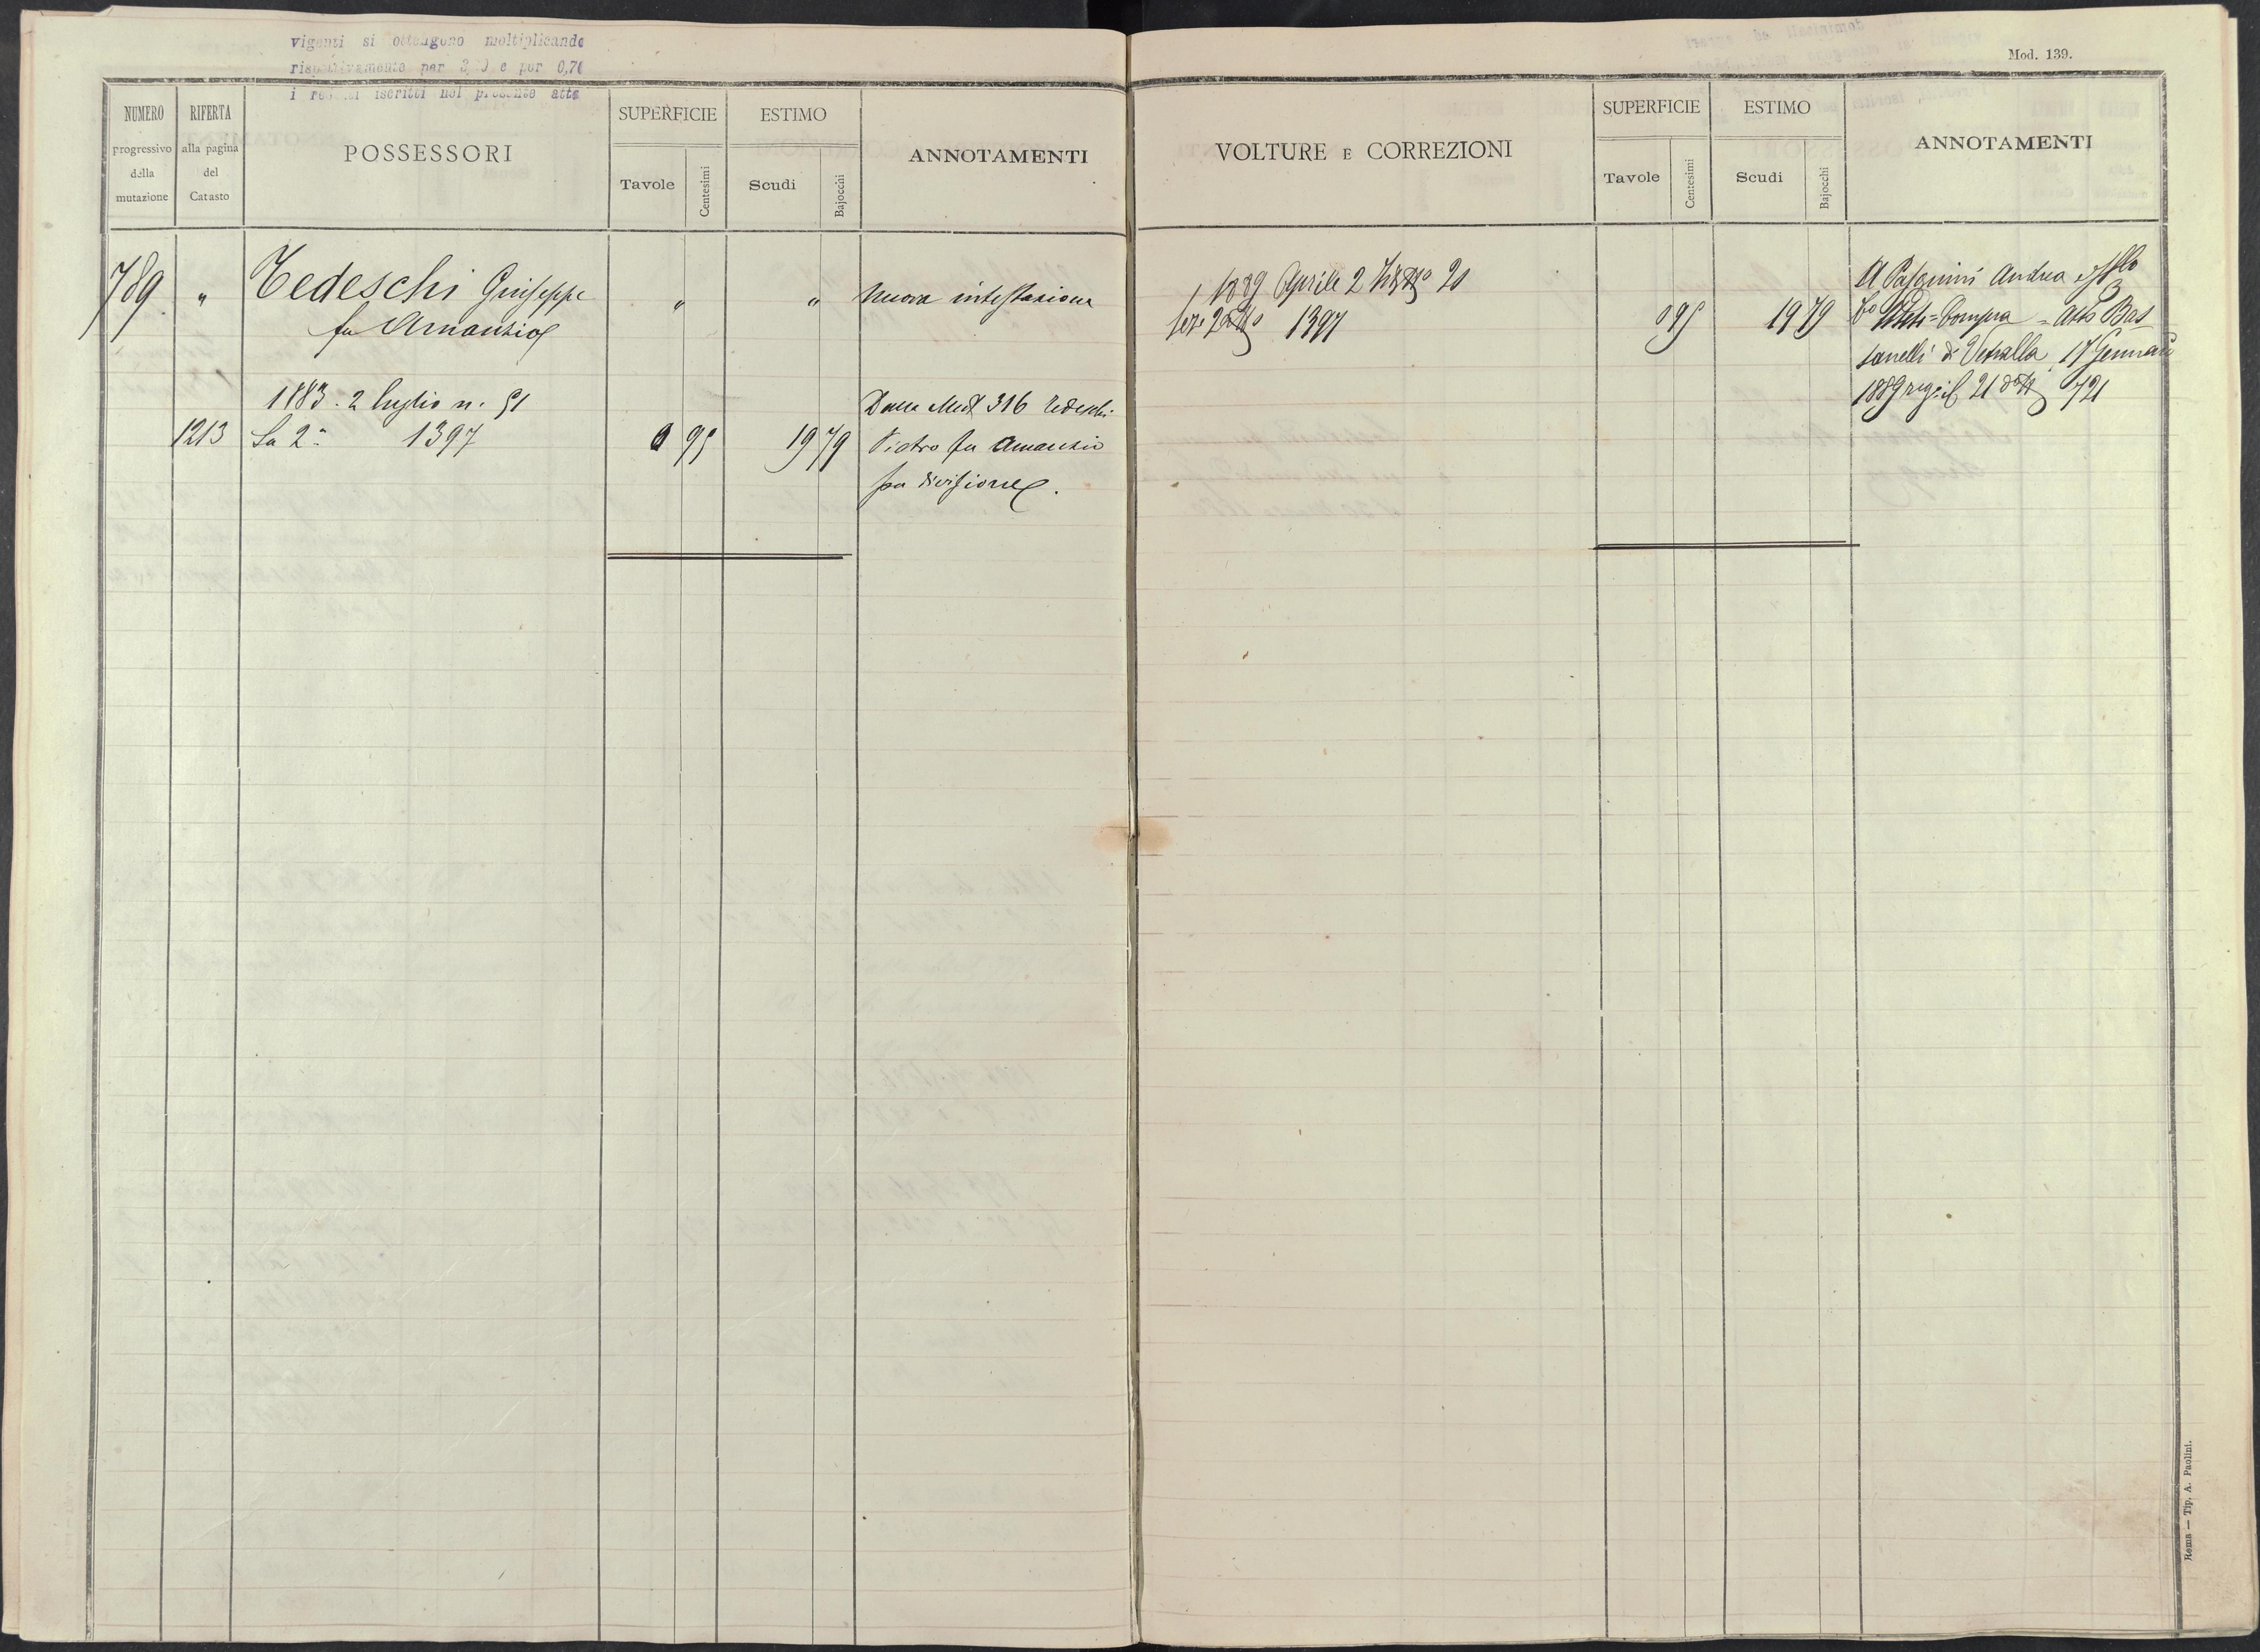 vigenti si ottengono moltiplicando
rispettivamente per e per 0,70
i redditi iscritti nel presente atto
Mod. 139.
NUMERO progressivo della mutazione
RIFERTA alla pagina del Catasto
POSSESSORI
SUPERFICIE
Tavole
Centesimi
ESTIMO
Scudi
Bajocchi
ANNOTAMENTI
VOLTURE E CORREZIONI
SUPERFICIE
Tavole
Centesimi
ESTIMO
Scudi
Bajocchi
ANNOTAMENTI
789 " Tedeschi Giuseppe " " Nuova intestazione
fu Amanzio
1883. 2 luglio n. 51 Dalla 316 Tedeschi
1213 Sa 2a 1397 0 95 19 79 Pietro fu Amanzio
per divisione.
1889 Aprile 2 20
Sez 2a 1397 0 95 19 79
A Pasquini Andrea
= Compra = Atto Bas
sanelli di Vetralla, 17 Gennaio
1889 reg. il 21 721
Roma — Tip. A. Paolini.